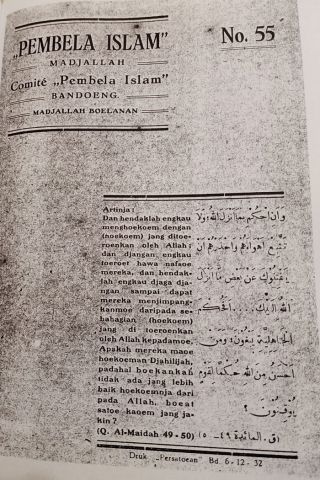 „PEMBELA ISLAM”
MADJALLAH
Comité „Pembela Islam”
BANDOENG.
MADJALLAH BOELANAN
No. 55
Artinja:
Dan hendaklah engkau
menghoekoem dengan
(hoekoem) jang ditoe-
roenkan oleh Allah;
dan djangan engkau
toeroet hawa nafsoe
mereka, dan hendak-
lah engkau djaga dja-
ngan sampai dapat
mereka menjimpang-
kanmoe daripada se-
bahagian (hoekoem)
jang di toeroenkan
oleh Allah kepadamoe.
Apakah mereka maoe
hoekoeman Djahilijah,
padahal boekankah
tidak ada jang lebih
baik hoekoemnja dari
pada Allah, boeat
satoe kaoem jang ja-
kin?
(Q. Al-Maidah 49 - 50)
وَانِ احْكُمْ بِمَا أَنْزَلَ اللهُ وَلَا
تَتَّبِعْ أَهْوَاءَهُمْ وَاحْذَرْهُمْ أَنْ
يَفْتِنُوكَ عَنْ بَعْضِ مَا أَنْزَلَ
اللهُ إِلَيْكَ .... أَفَحُكْمَ
الْجَاهِلِيَّةِ يَبْغُونَ؛ وَمَنْ
أَحْسَنُ مِنَ اللهِ حُكْمًا لِقَوْمٍ
يُوقِنُونَ ؟
(ق. المائدة ٤٩ - ٥٠)
Druk „Persatoean” Bd. 6-12-32